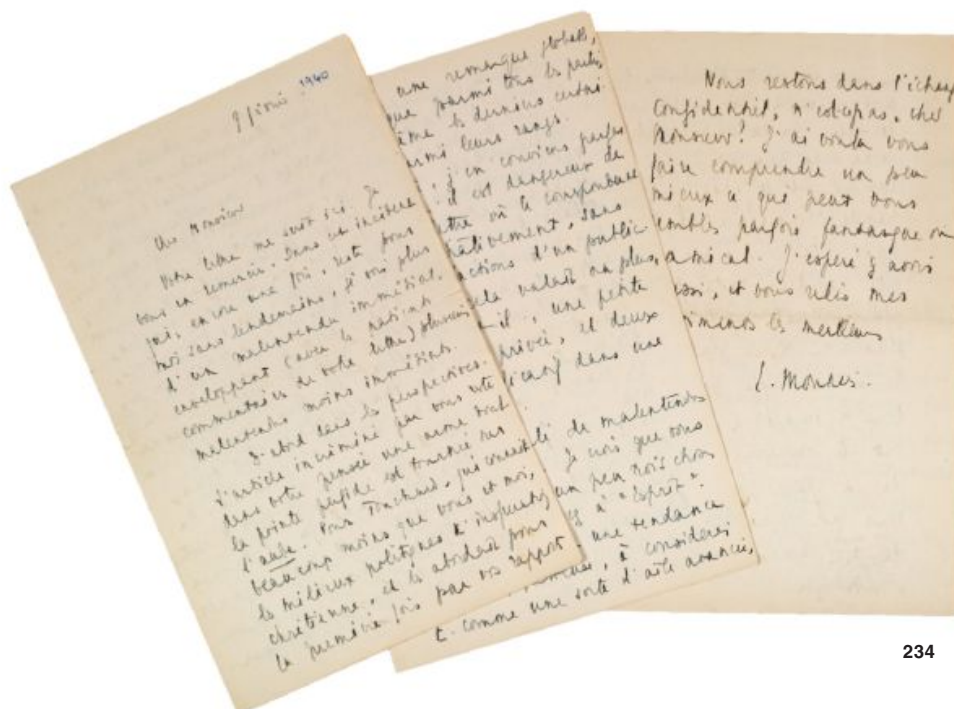 9 janvier 1940
Cher Monsieur
Votre lettre me suit ici. Je
vous en remercie. Dans cet incident
qui, encore une fois, reste pour
moi sans lendemains, je vois plus
d'un malentendu immédiat,
enveloppant (avec les
commentaires de votre lettre) plusieurs
malentendus moins immédiats.
D'abord dans les perspectives.
L'article incriminé par vous reste
dans votre pensée une arme dont
la pointe perfide est tournée sur
l'aube. Pour Touchard, qui connaît
beaucoup moins que vous et moi,
les milieux politiques d'inspiration
chrétienne, et les abordait pour
la première fois par vos rapports
une remarque globale,
que parmi tous les partis
même les derniers
parmi leurs rangs.
j'en conviens
il est dangereux de
où le
sans
actions d'un public
cela valait au plus,
une petite
privée, et deux
dans une
de malentendus
Je crois que vous
un peu trois choses
à "Esprit".
une tendance
à considérer
E. comme une sorte d'aile avancée,
Nous restons dans l'échange
confidentiel, n'est-ce pas, cher
Monsieur! J'ai voulu vous
faire comprendre un peu
mieux ce qui peut vous
sembler parfois fantasque ou
amical. J'espère y avoir
et vous redis mes
sentiments les meilleurs
E. Mounier.
234